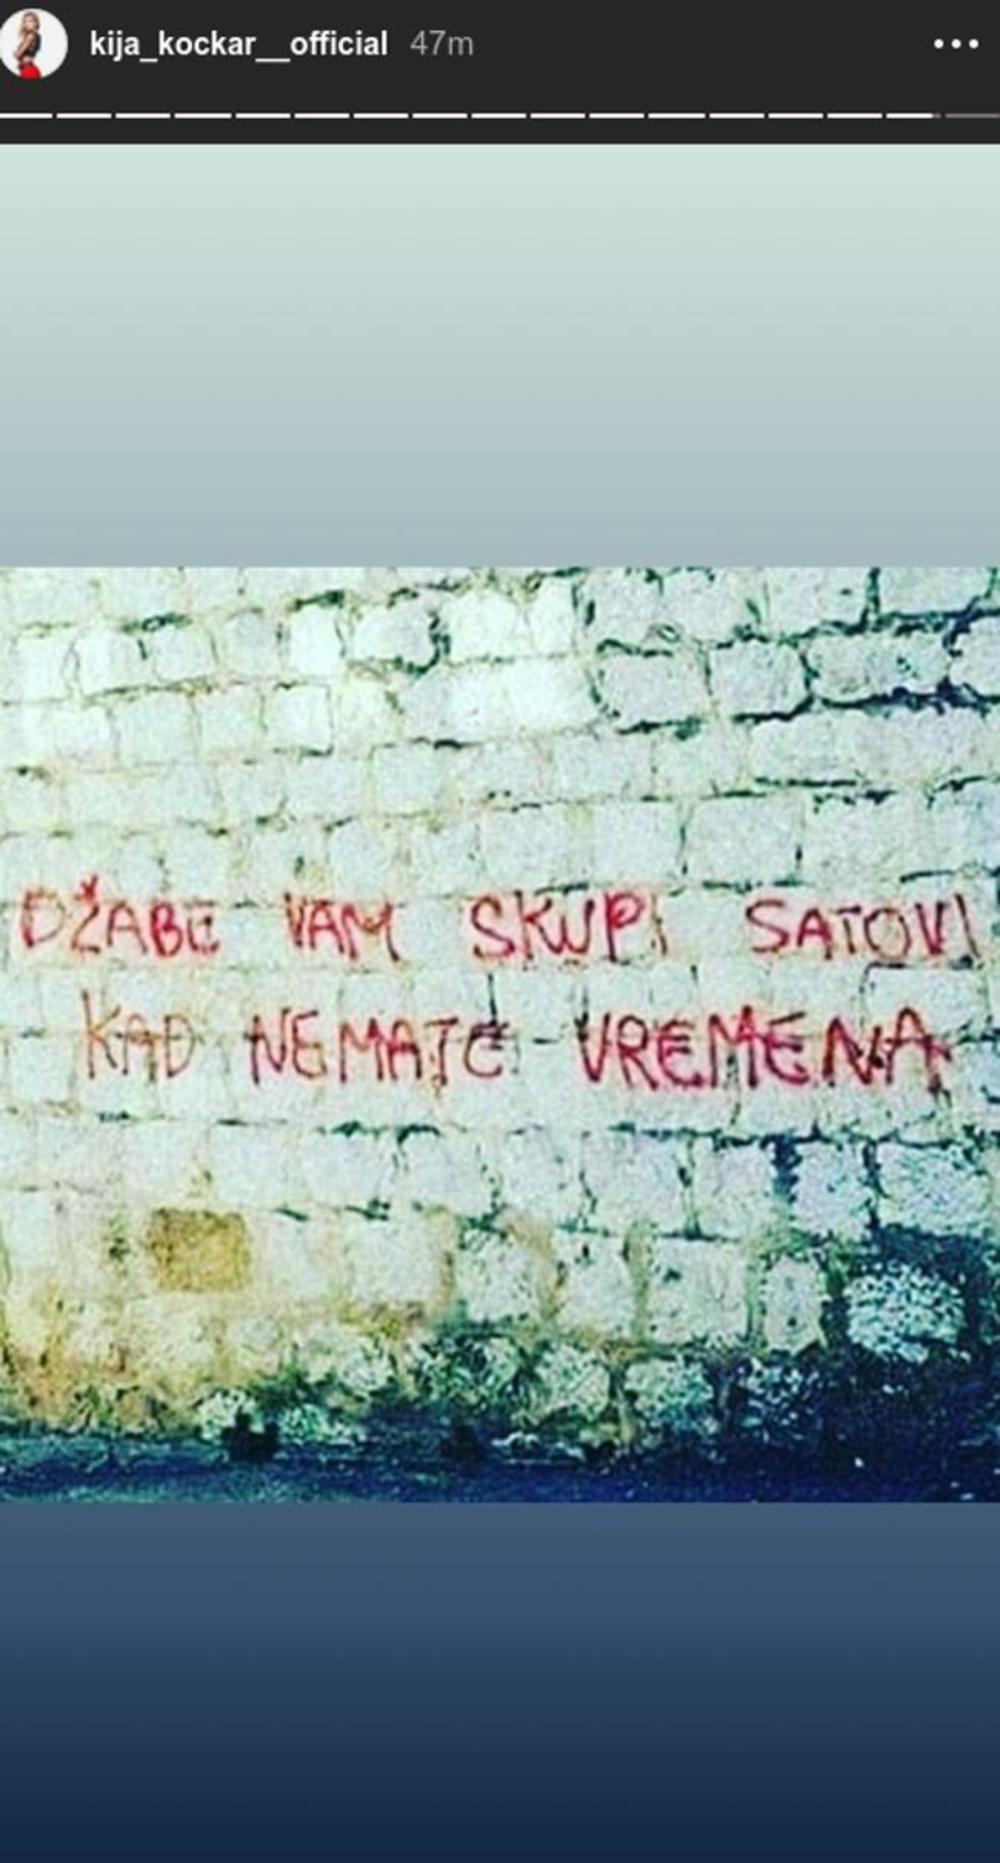 kija_kockar__official 47m
DŽABE VAM SKUPI SATOVI
KAD NEMATE VREMENA